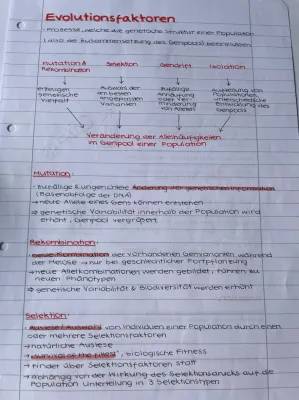 Evolutionsfaktoren
· Prozesse, welche die genetische Struktur einer Population
(also die Zusammensetzung des Genpools) beeinflussen
Mutation & Rekombination
Selektion
Gendrift
Isolation
erzeugen genetische Vielfalt
Auswahl der am besten angepassten Varianten
zufällige Anhäufung oder Verminderung von Allelen
Aufteilung von Populationen, unterschiedliche Entwicklung des Genpools
Veränderung der Allelhäufigkeiten
im Genpool einer Population
Mutation:
- zufällige & ungerichtete Änderung der genetischen Information
(Basenabfolge der DNA)
→ neue Allele eines Gens können entstehen
⇒ genetische Variabilität innerhalb der Population wird
erhöht, Genpool vergrößert
Rekombination:
- neue Kombination der vorhandenen Genvarianten während
der Meiose → nur bei geschlechtlicher Fortpflanzung
→ neue Allelkombinationen werden gebildet, führen zu
neuen Phänotypen
⇒ genetische Variabilität & Biodiversität werden erhöht
Selektion:
- Auslese/Auswahl von Individuen einer Population durch einen
oder mehrere Selektionsfaktoren
→ natürliche Auslese
→ "survival of the fittest", biologische Fitness
→ findet über Selektionsfaktoren statt
→ abhängig von der Wirkung des Selektionsdrucks auf die
Population Unterteilung in 3 Selektionstypen